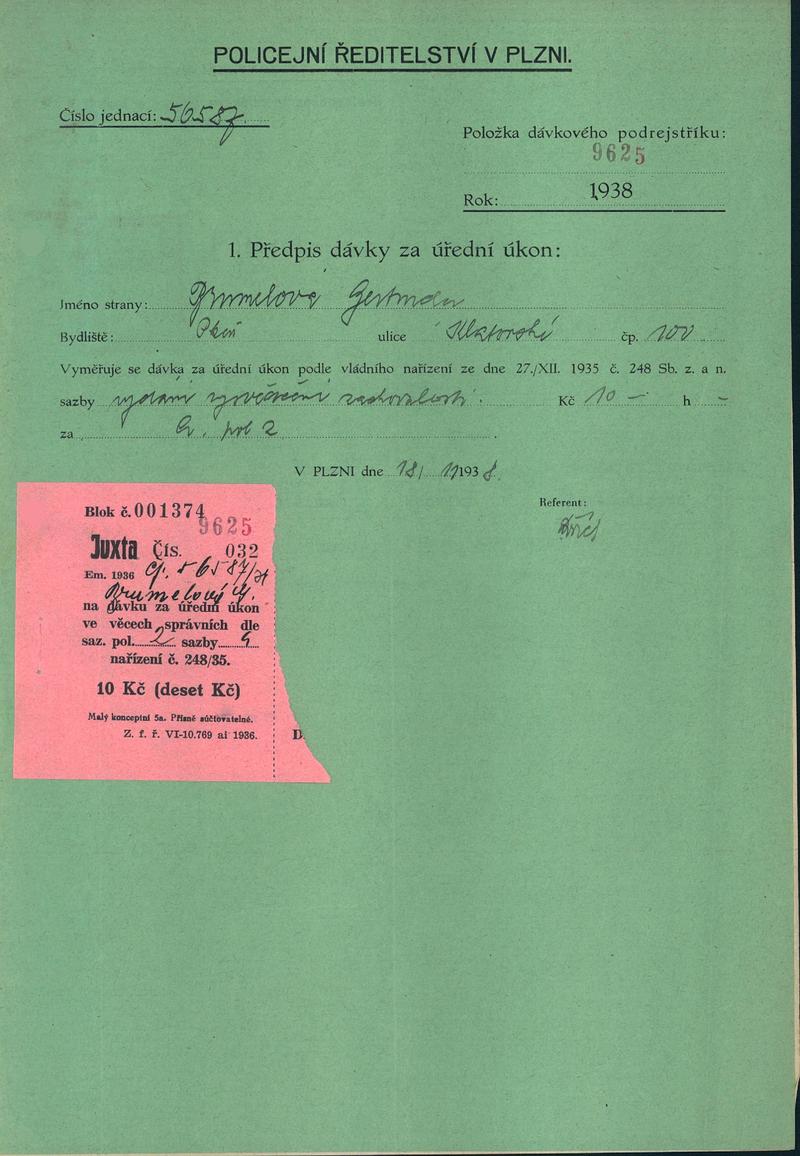 POLICEJNÍ ŘEDITELSTVÍ V PLZNI.
Číslo jednací: 56587
Položka dávkového podrejstříku:
9625
Rok: 1938
1. Předpis dávky za úřední úkon:
Jméno strany: Brumelová Gertruda
Bydliště: Plzeň ulice Klatovská čp. 100
Vyměřuje se dávka za úřední úkon podle vládního nařízení ze dne 27./XII. 1935 č. 248 Sb. z. a n.
sazby vydání vysvědčení zachovalosti Kč 10 — h —
za pol 2
V PLZNI dne 18/ 1938
Referent:
Blok č. 001374
9625
Juxta Čís. 032
Em. 1936 čj. 56587/
Brumelová G.
na dávku za úřední úkon
ve věcech správních dle
saz. pol. 2 sazby
nařízení č. 248/35.
10 Kč (deset Kč)
Malý konceptní 5a. Přísně súčtovatelné.
Z. f. ř. VI-10.769 ai 1936.
D